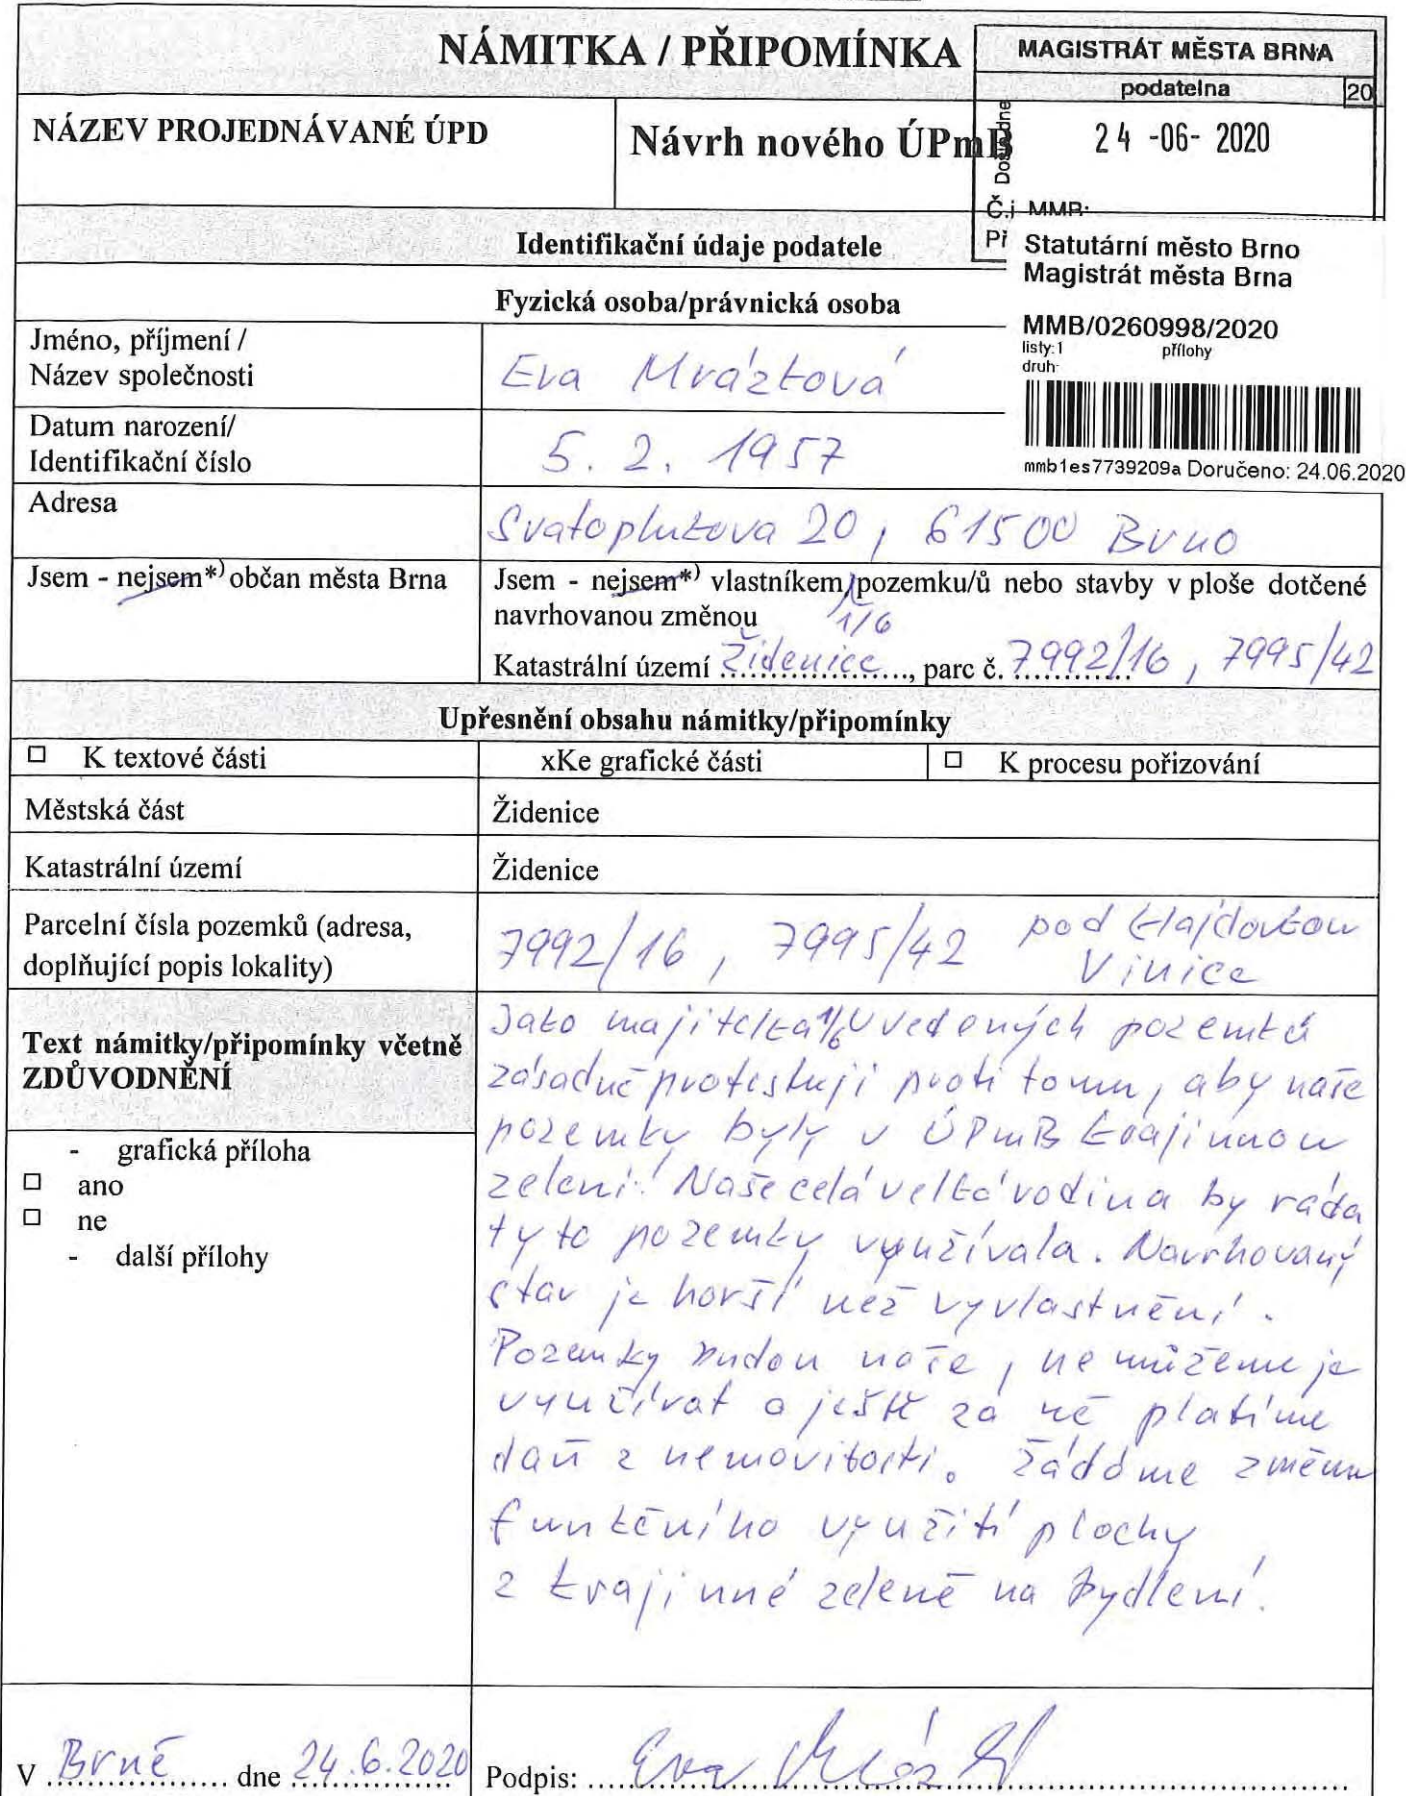 NÁMITKA / PŘIPOMÍNKA
MAGISTRÁT MĚSTA BRNA
podatelna 20
Došlo dne
24 -06- 2020
Č.j MMB:
Př
NÁZEV PROJEDNÁVANÉ ÚPD
Návrh nového ÚPmB
Statutární město Brno
Magistrát města Brna
MMB/0260998/2020
listy:1 přílohy
druh:
mmb1es7739209a Doručeno: 24.06.2020
Identifikační údaje podatele
Fyzická osoba/právnická osoba
Jméno, příjmení /
Název společnosti
Eva Mrázková
Datum narození/
Identifikační číslo
5. 2. 1957
Adresa
Svatoplukova 20, 61500 Brno
Jsem - nejsem*) občan města Brna
Jsem - nejsem*) vlastníkem pozemku/ů nebo stavby v ploše dotčené
navrhovanou změnou 1/6
Katastrální území Židenice, parc č. 7992/16, 7995/42
Upřesnění obsahu námitky/připomínky
□ K textové části
xKe grafické části
□ K procesu pořizování
Městská část
Židenice
Katastrální území
Židenice
Parcelní čísla pozemků (adresa,
doplňující popis lokality)
7992/16, 7995/42 pod Hajdovkou
Vinice
Text námitky/připomínky včetně
ZDŮVODNĚNÍ
- grafická příloha
□ ano
□ ne
- další přílohy
Jako majitelka 1/6 uvedených pozemků
zásadně protestuji proti tomu, aby naše
pozemky byly v ÚPmB krajinnou
zelení! Naše celá velká rodina by ráda
tyto pozemky využívala. Navrhovaný
stav je horší než vyvlastnění.
Pozemky budou naše, nemůžeme je
využívat a ještě za ně platíme
daň z nemovitosti. Žádáme změnu
funkčního využití plochy
z krajinné zeleně na bydlení.
V Brně dne 24.6.2020
Podpis: Eva